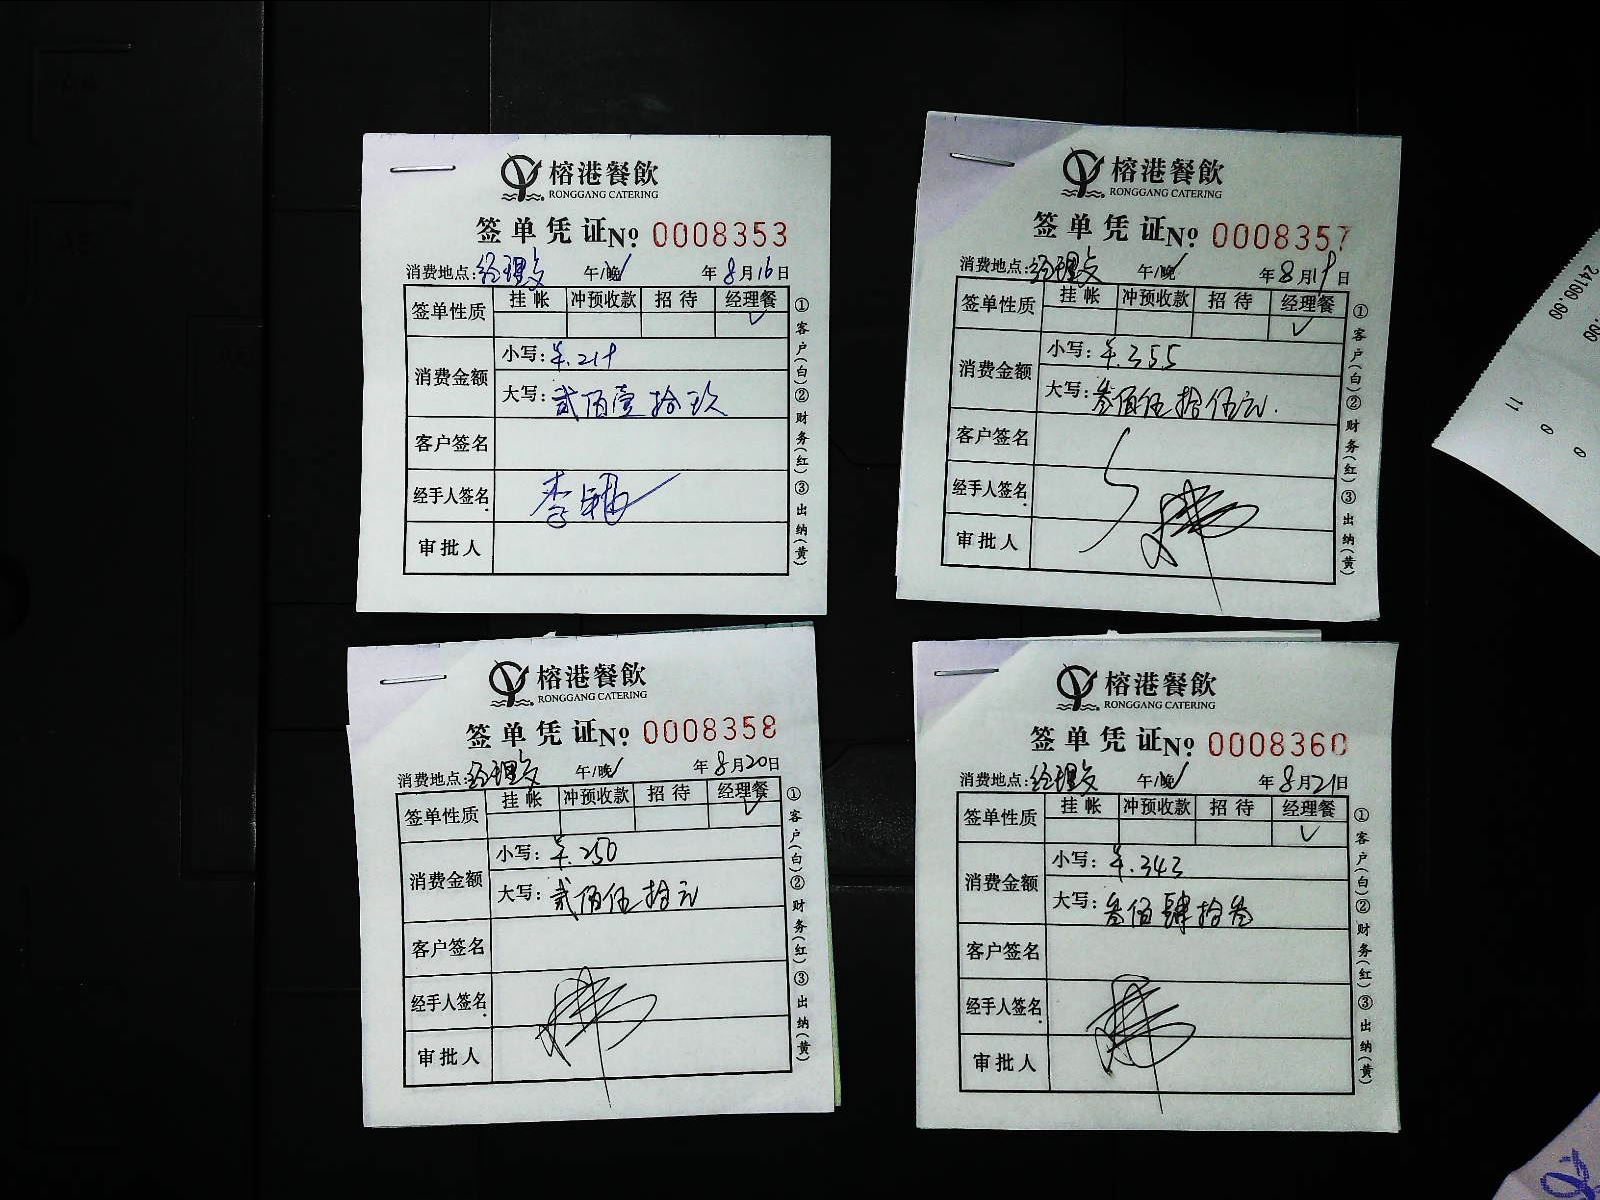 榕港餐飲
RONGGANG CATERING
签单凭证 No. 0008353
消费地点: 经理 午/晚 年8月16日
签单性质 挂帐 冲预收款 招待 经理餐
✓
消费金额 小写: ¥.219
大写: 贰佰壹拾玖
客户签名
经手人签名
审批人
①客户(白)②财务(红)③出纳(黄)
榕港餐飲
RONGGANG CATERING
签单凭证 No. 0008357
消费地点: 经理 午/晚 年8月19日
签单性质 挂帐 冲预收款 招待 经理餐
✓
消费金额 小写: ¥.355
大写: 叁佰伍拾伍元.
客户签名
经手人签名
审批人
①客户(白)②财务(红)③出纳(黄)
榕港餐飲
RONGGANG CATERING
签单凭证 No. 0008358
消费地点: 经理 午/晚 年8月20日
签单性质 挂帐 冲预收款 招待 经理餐
✓
消费金额 小写: ¥.250
大写: 贰佰伍拾元
客户签名
经手人签名
审批人
①客户(白)②财务(红)③出纳(黄)
榕港餐飲
RONGGANG CATERING
签单凭证 No. 0008360
消费地点: 经理 午/晚 年8月21日
签单性质 挂帐 冲预收款 招待 经理餐
✓
消费金额 小写: ¥.343
大写: 叁佰肆拾叁
客户签名
经手人签名
审批人
①客户(白)②财务(红)③出纳(黄)
24100.00
.00
11
0
0